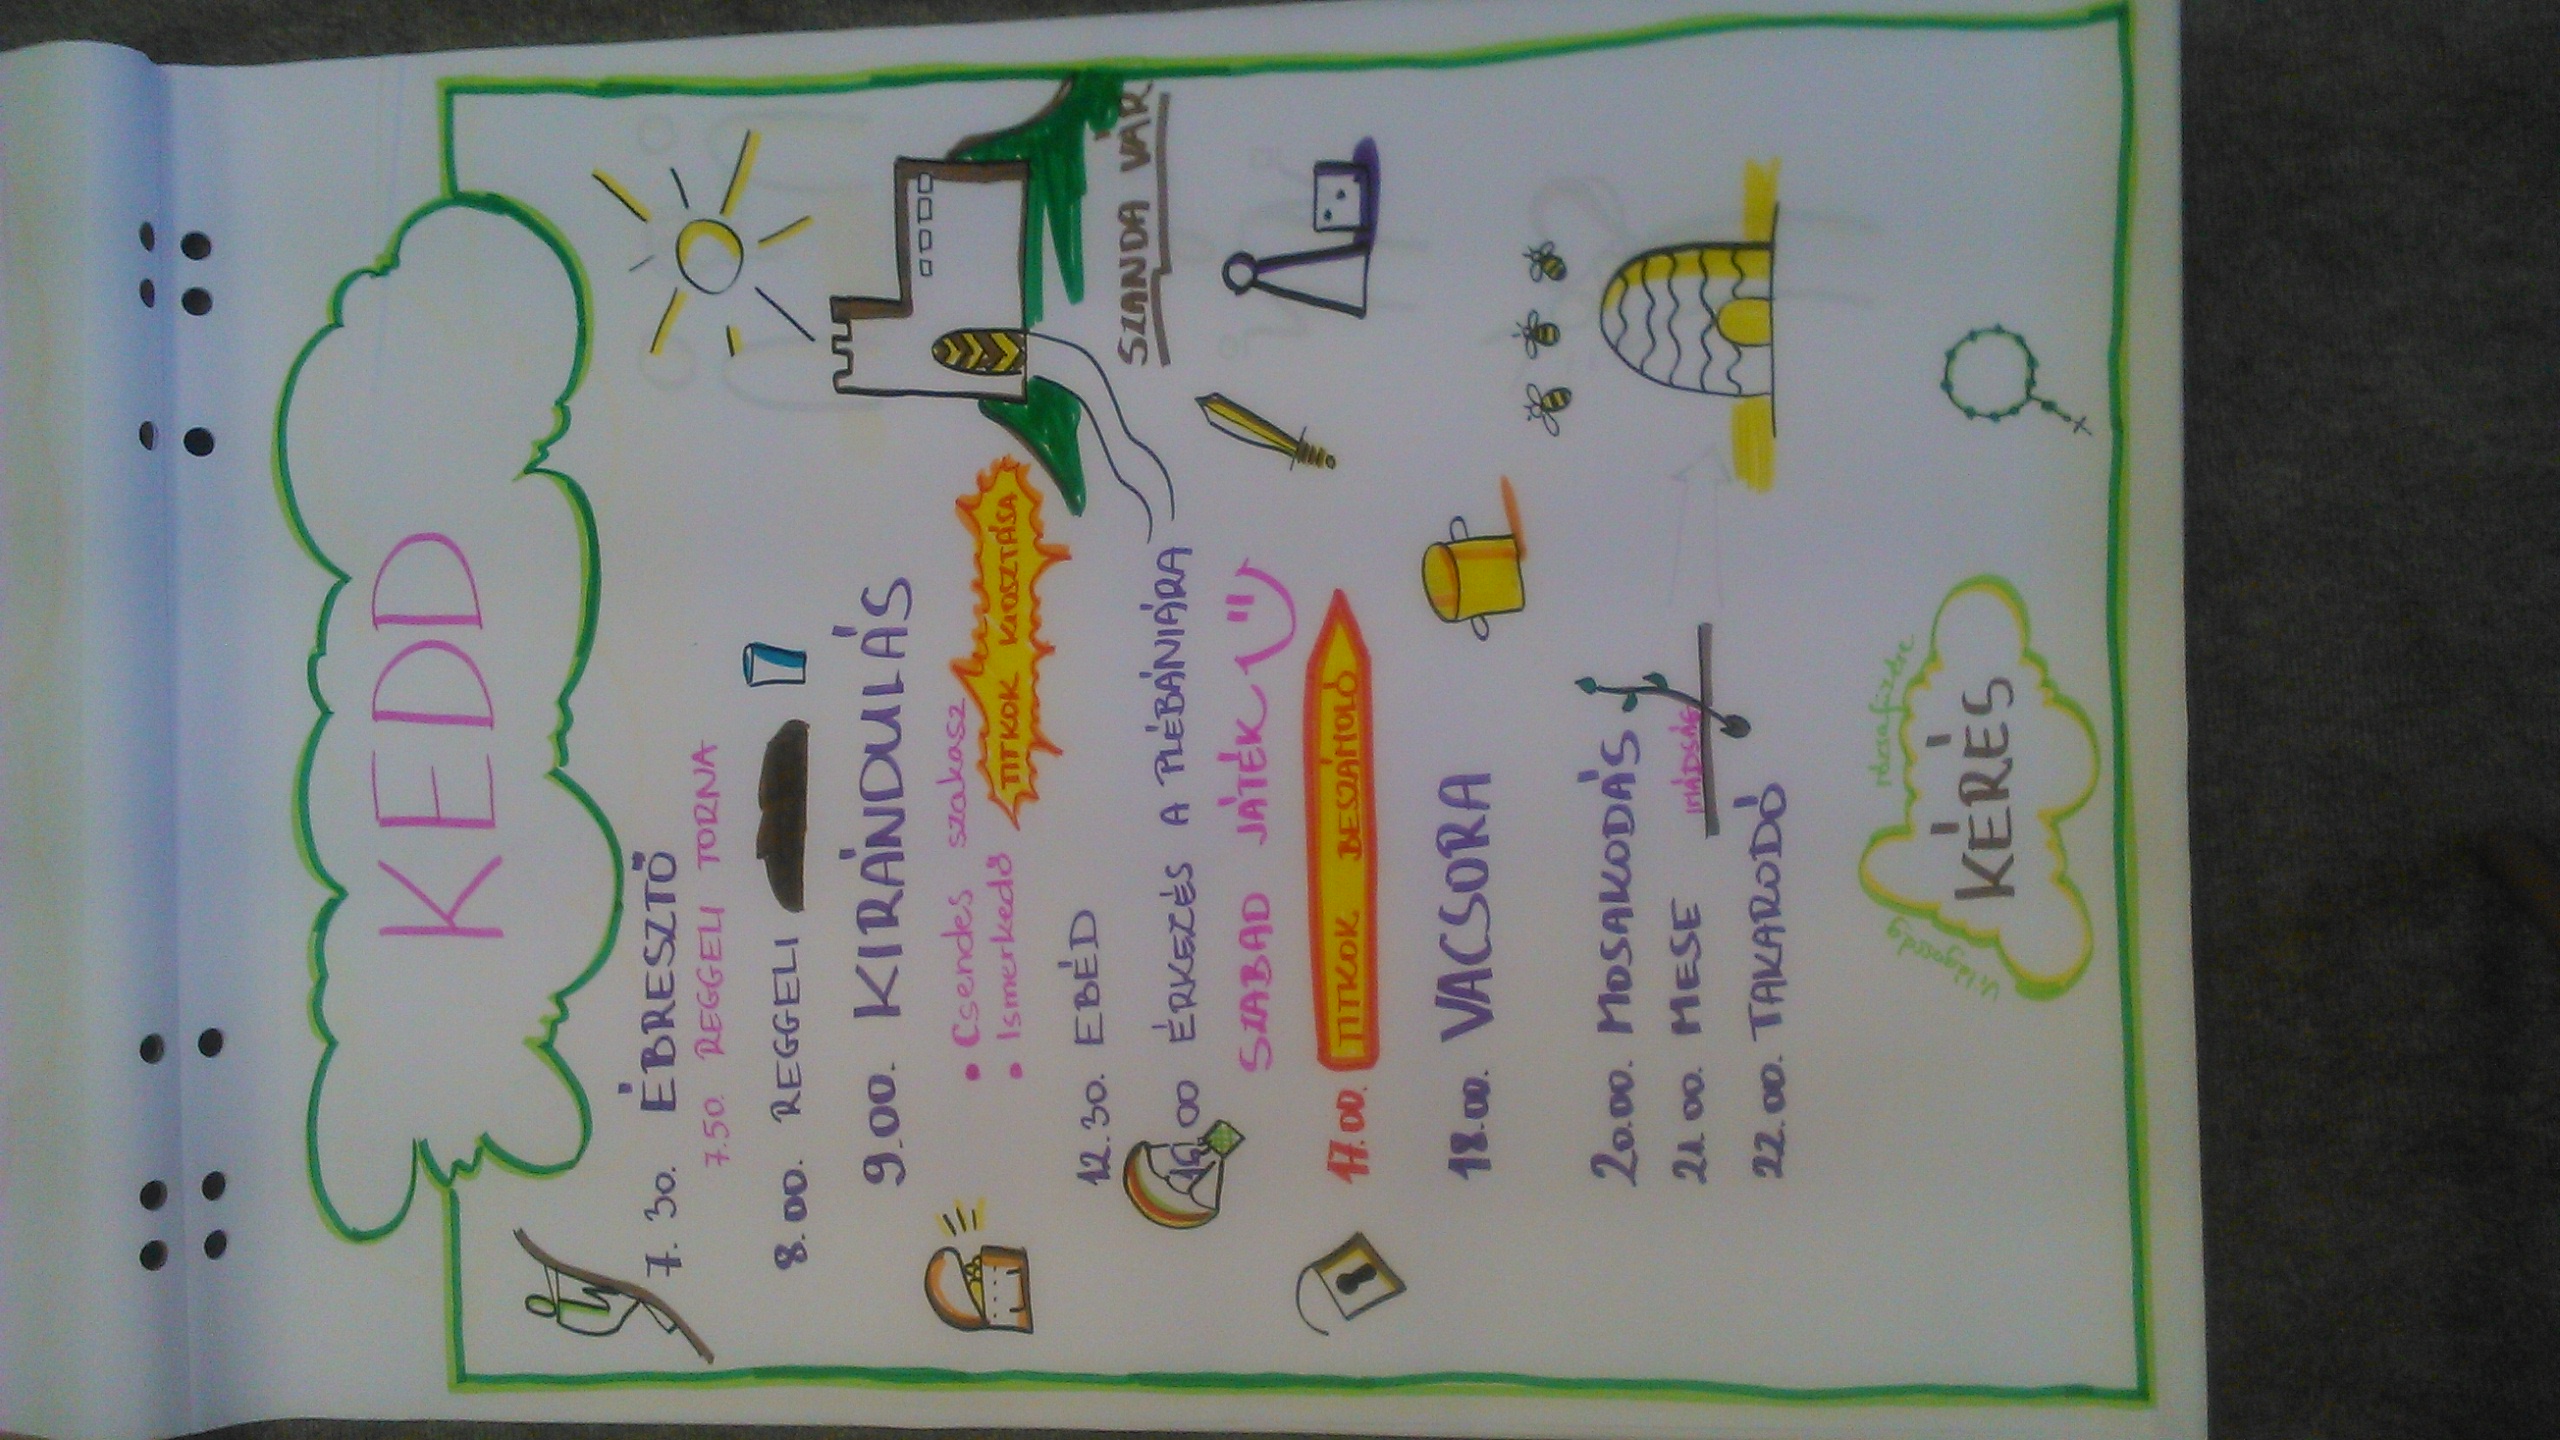 KEDD
7.30. ÉBRESZTŐ
7.50. REGGELI TORNA
8.00. REGGELI
9.00. KIRÁNDULÁS
• Csendes szakasz
• Ismerkedő
TITKOK KIOSZTÁSA
12.30. EBÉD
SZANDA VÁR
00 ÉRKEZÉS A PLÉBÁNIÁRA
SZABAD JÁTÉK
17.00. TITKOK BESZÁMOLÓ
18.00. VACSORA
20.00. MOSAKODÁS
21.00. MESE
IMÁDSÁG
22.00. TAKARODÓ
rózsafüzére
KÉRÉS
világosság